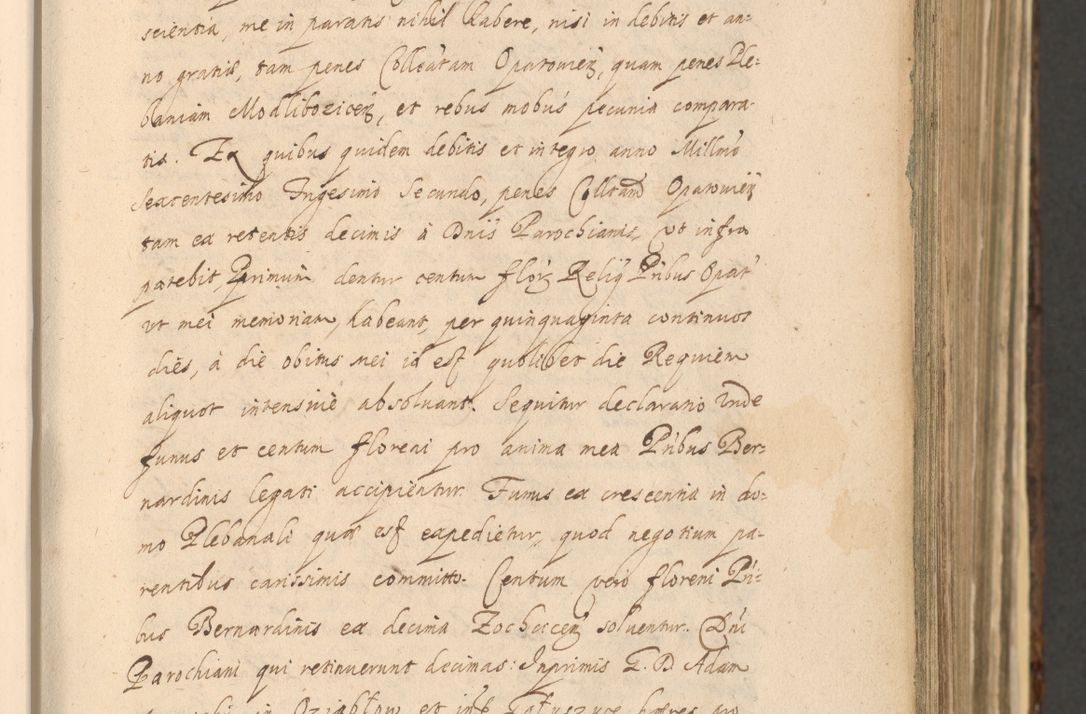 scientia, me in paratis nihil habere, nisi in debitis et an-
no gratiæ, tam penes Colleatam Opatovien, quam penes Ple-
baniam Modliborzicen, et rebus mobus pecunia compara-
tis. Ex quibus quidem debitis et integro anno Millmo
Sexcentesimo Trigesimo Secundo, penes Colltam Opatovien
tam ex retentis decimis à Dnis Parochianis, ut infra
patebit, Primum dentur centum floz Relig Pribus Opat
ut mei memoriam habeant, per quinquaginta continuos
dies, à die obitus mei id est quolibet die Requiem
aliquot intensive absolvant. Sequitur declaratio Unde
funus et centum floreni pro anima mea Pribus Ber-
nardinis legati accipientur. Funus ex crescentia in do-
mo Plebanali quæ est expedietur, quod negotium pa-
rentibus carissimis committo. Centum vero floreni Pri-
bus Bernardinis ex decima Zochcicen solventur. Dni
Parochiani qui retinuerunt decimas: Inprimis G. D. Adam
in et